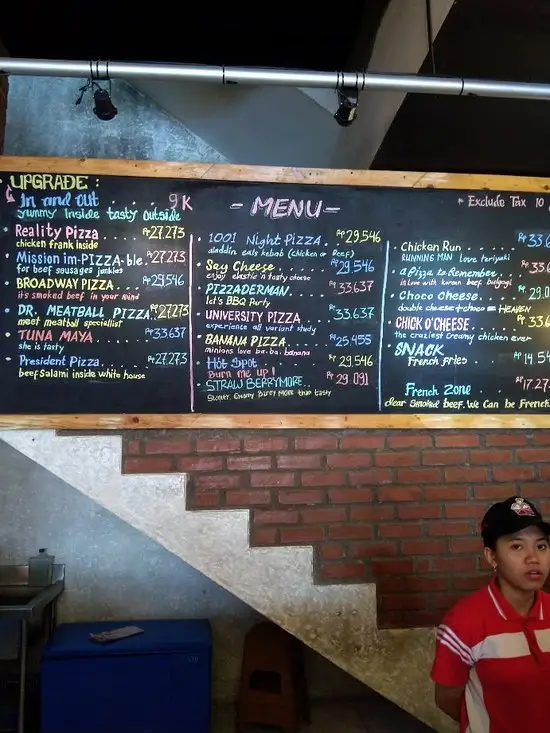 UPGRADE :
In and Out . . . . . 9K
Yummy Inside tasty outside
- MENU -
* Exclude Tax 10
Reality Pizza . . . . Rp 27.273
chicken frank inside
Mission im-PIZZA-ble . Rp 27.273
for beef sausages junkies
BROADWAY PIZZA . . . Rp 29.546
it's smoked beef in your mind
DR. MEATBALL PIZZA . Rp 27.273
meet meatball specialist
TUNA MAYA . . Rp 33.637
she is tasty
President Pizza . . . Rp 27.273
beef Salami inside white house
1001 Night Pizza . Rp 29.546
aladdin eats kebab (chicken or Beef)
Say Cheese . . . Rp 29.546
enjoy elastic n tasty cheese
PIZZADERMAN . . . Rp 33.637
let's BBQ Party
UNIVERSITY PIZZA . . Rp 33.637
experience all variant study
BANANA PIZZA . . . Rp 25.455
minions love ba. ba. banana
Hot Spot . . . . Rp 29.546
Burn me up !
STRAW BERRYMORE . . Rp 29.091
Sweet, Creamy Berry MORE than tasty
Chicken Run . . . . Rp
RUNNING MAN Love teriyaki
a Pizza to Remember . . . Rp
in love with korean beef bulgogi
Choco Cheese . . . . . Rp
double cheese + choco = HEAVEN
CHICK O'CHEESE . . . Rp
the craziest creamy chicken ever
SNACK
French fries . . . Rp 14.54
French Zone . . . . Rp 17.27
dear Smoked beef, We Can be French